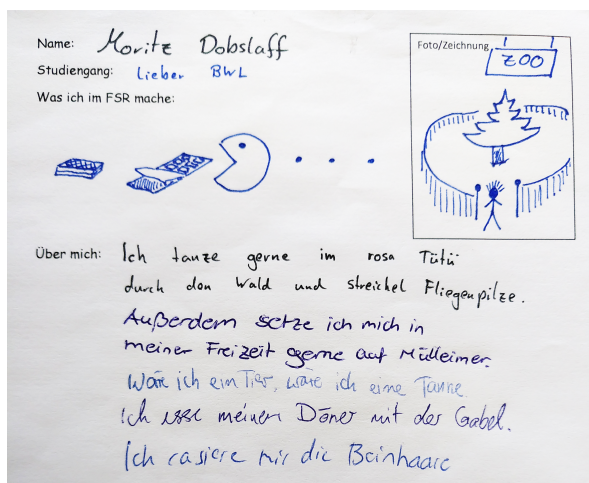 Name: Moritz Dobslaff
Foto/Zeichnung
ZOO
Studiengang: Lieber BWL
Was ich im FSR mache:
Über mich: Ich tanze gerne im rosa Tütü
durch den Wald und streichel Fliegenpilze.
Außerdem setze ich mich in
meiner Freizeit gerne auf Mülleimer.
Wäre ich ein Tier, wäre ich eine Tanne.
Ich esse meinen Döner mit der Gabel.
Ich rasiere mir die Beinhaare